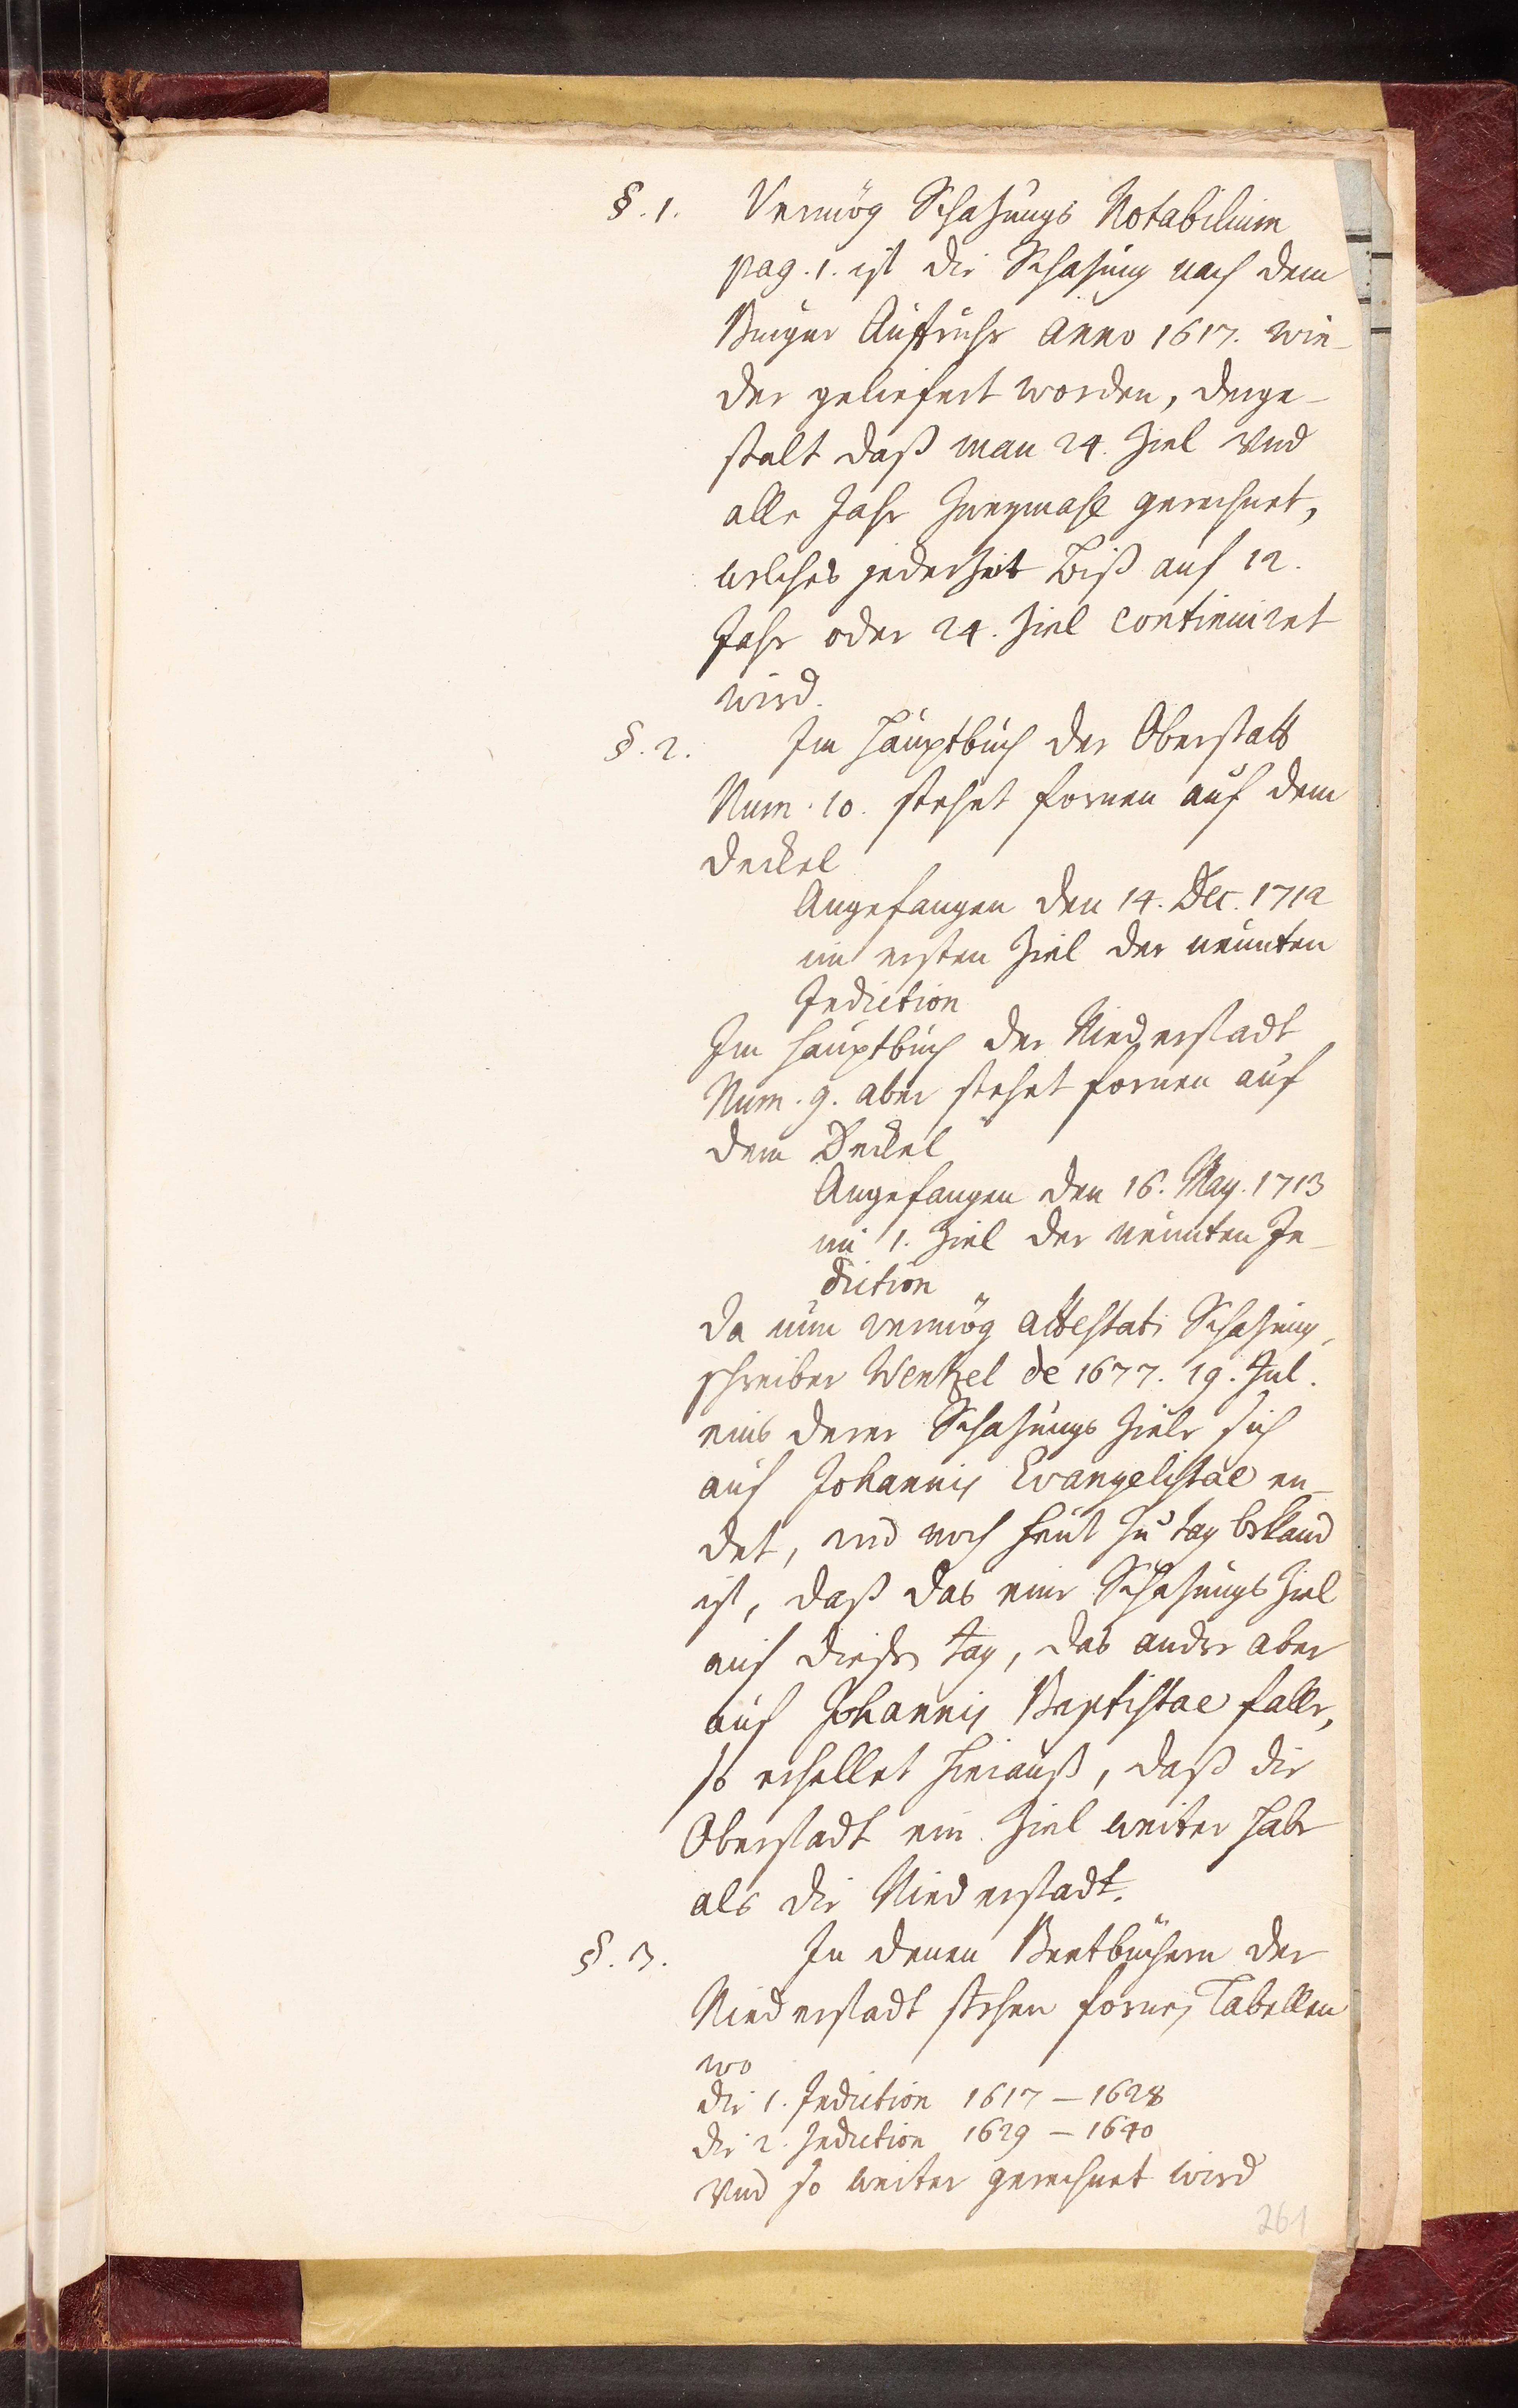 §. 1. Vermög Schatzungs Notabilium
pag. 1. ist die Schatzung nach dem
Burger Auffruhr Anno 1617. wie-
der geliefert worden, derge-
stalt daß man 24. Ziel und
alle Jahr zweymahl gerechnet,
welches jederzeit biß auf 12.
Jahr oder 24. Ziel continuiret
wird.
§. 2. Im Hauptbuch der Oberstatt
Num. 10. stehet fornen auf dem
Deckel
Angefangen den 14. Dec. 1712
im ersten Ziel der neunten
Indiction
Im Hauptbuch der Niederstadt
Num. 9. aber stehet fornen auf
dem Deckel
Angefangen den 16. May. 1713
im 1. Ziel der neunten In-
diction
Da nun vermög attestati Schatzung-
schreiber Wentzel de 1677. 19. Jul.
eins derer Schatzungs Ziele sich
auf Johannis Evangelistae en-
det, und noch heut zu tag bekand
ist, daß das eine Schatzungs Ziel
auf diesen tag, das andere aber
auf Johannis Baptistae falle,
so erhellet hierauß, daß die
Oberstadt ein Ziel weiter habe
als die Niederstadt.
§. 3. In denen Beetbüchern der
Niederstadt stehen fornen Tabellen
wo
die 1. Indiction 1617 – 1628
die 2. Indiction 1629 – 1640
und so weiter gerechnet wird
261